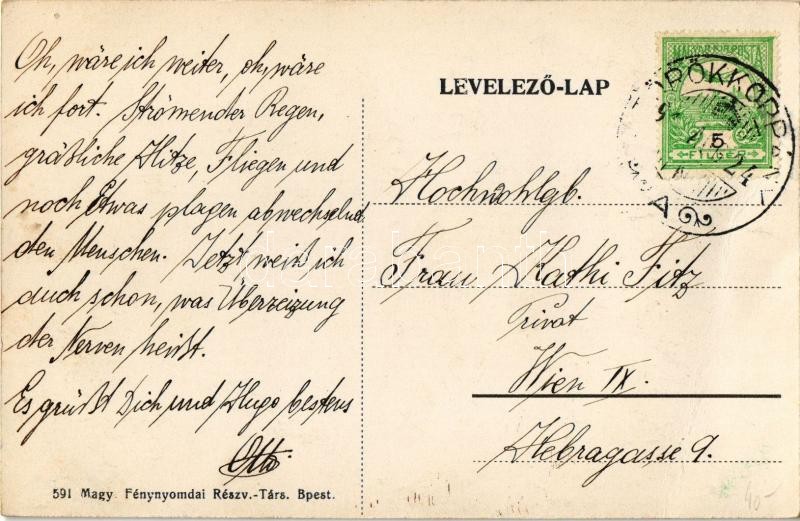 Oh, wäre ich weiter, oh, wäre
ich fort. Strömender Regen,
gräßliche Hitze, Fliegen und
noch Etwas plagen abwechselnd
den Menschen. Jetzt weiß ich
auch schon, was Überreizung
der Nerven heißt.
Es grüßt Dich und Hugo bestens
Otto
591 Magy. Fénynyomdai Részv.-Társ. Bpest.
LEVELEZŐ-LAP
MAGYAR KIR. POSTA
5
FILLÉR
TÖRÖKKOPPÁNY
24
A
Hochwohlgb.
Frau Kathi Fitz
Privat
Wien IX.
Hebragasse 9.
40-
darabanth